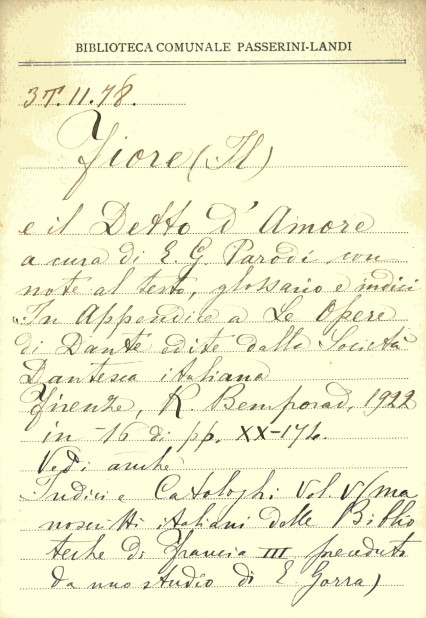 BIBLIOTECA COMUNALE PASSERINI-LANDI
3T.11.78.
Fiore (Il)
e il Detto d'Amore
a cura di E. G. Parodi con
note al testo, glossario e indici
"In Appendice a Le Opere
di Dante edite dalla Società
Dantesca italiana
Firenze, R. Bemporad, 1922
in-16 di pp. XX-174.
Vedi anche
Indici e Cataloghi Vol. V (ma
noscritti italiani delle Biblio
teche di Francia III preceduti
da uno studio di E. Gorra)